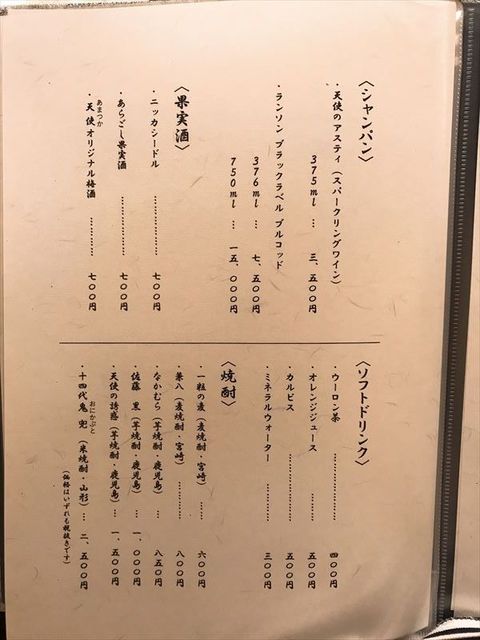 〈シャンパン〉
・天使のアスティ（スパークリングワイン）
375ml … 三、五〇〇円
・ランソン ブラックラベル ブルコッド
376ml … 七、五〇〇円
750ml … 一五、〇〇〇円
〈果実酒〉
・ニッカシードル ……………… 七〇〇円
・あらごし果実酒 ……………… 七〇〇円
・天使オリジナル梅酒 ……………… 七〇〇円
あまつか
〈ソフトドリンク〉
・ウーロン茶 ……………………… 四〇〇円
・オレンジジュース ………… 五〇〇円
・カルピス ……………………… 五〇〇円
・ミネラルウォーター ………… 三〇〇円
〈焼酎〉
・一粒の麦（麦焼酎・宮崎） …… 六〇〇円
・兼八（麦焼酎・宮崎） ………… 八〇〇円
・なかむら（芋焼酎・鹿児島） … 八五〇円
・佐藤 黒（芋焼酎・鹿児島） … 一、〇〇〇円
・天使の誘惑（芋焼酎・鹿児島） … 一、五〇〇円
・十四代鬼兜（米焼酎・山形） … 二、五〇〇円
おにかぶと
（価格はいずれも税抜きです）